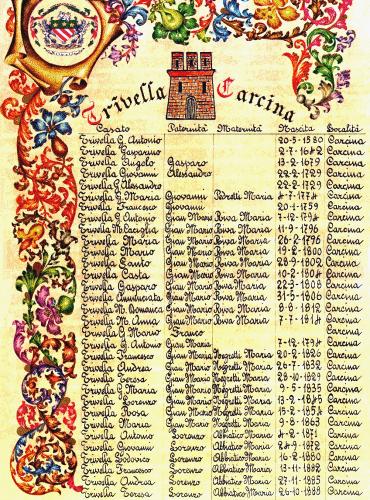 Trivella Carcina
Casato Paternità Maternità Nascita Località
Trivella G. Antonio 20-5-1580 Carcina
Trivella Gasparino Carcina
Trivella Angelo Gasparo 13-2-1679 Carcina
Trivella Giovanni Alessandro 22-2-1729 Carcina
Trivella G. Alessandro 22-2-1729 Carcina
Trivella G. Maria Giovanni Pedretti Maria 4-7-1774 Carcina
Trivella Francesco Giovanni 20-1-1759 Carcina
Trivella G. Antonio Gian Mario Riva Maria 7-12-1794 Carcina
Trivella M. Ceciglia Gian Mario Riva Maria 11-9-1796 Carcina
Trivella Maria Gian Mario Riva Maria 26-2-1796 Carcina
Trivella Mario Gian Mario Riva Maria 19-2-1800 Carcina
Trivella Santo Gian Mario Riva Maria 28-9-1802 Carcina
Trivella Casta Gian Mario Riva Maria 10-2-1804 Carcina
Trivella Gasparo Gian Mario Riva Maria 22-3-1808 Carcina
Trivella Annunciata Gian Mario Riva Maria 31-5-1806 Carcina
Trivella M. Domenica Gian Mario Riva Maria 8-8-1812 Carcina
Trivella M. Anna Gian Mario Riva Maria 7-7-1814 Carcina
Trivella G. Mario Franco Carcina
Trivella G. Antonio Gian Maria 7-12-1794 Carcina
Trivella Francesco Gian Maria Negretti Maria 20-2-1820 Carcina
Trivella Andrea Gian Maria Negretti Maria 26-7-1832 Carcina
Trivella Teresa Gian Maria Negretti Maria 28-10-1829 Carcina
Trivella Maria Gian Mario Negretti Maria 9-5-1835 Carcina
Trivella Lorenzo Gian Mario Negretti Maria Carcina
Trivella Rosa Gian Mario Negretti Maria Carcina
Trivella Maria Gian Mario Negretti Maria 9-8-1863 Carcina
Trivella Antonio Lorenzo Abbiatico Maria 4-2-1871 Carcina
Trivella Giovanni Lorenzo Abbiatico Maria Carcina
Trivella Lodovico Lorenzo Abbiatico Maria Carcina
Trivella Francesco Lorenzo Abbiatico Maria 13-11-1882 Carcina
Trivella Andrea Lorenzo Abbiatico Maria 27-10-1885 Carcina
Trivella Teresa Lorenzo Abbiatico Maria 26-10-1888 Carcina